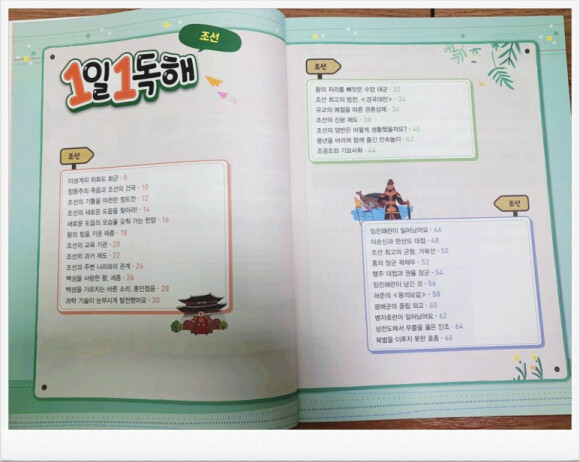 조선
1일1독해
조선
이성계의 위화도 회군 · 8
정몽주의 죽음과 조선의 건국 · 10
조선의 기틀을 마련한 정도전 · 12
조선의 새로운 도읍을 찾아라! · 14
새로운 도읍의 모습을 갖춰 가는 한양 · 16
왕의 힘을 키운 태종 · 18
조선의 교육 기관 · 20
조선의 과거 제도 · 22
조선과 주변 나라와의 관계 · 24
백성을 사랑한 왕, 세종 · 26
백성을 가르치는 바른 소리, 훈민정음 · 28
과학 기술이 눈부시게 발전했어요 · 30
조선
왕의 자리를 빼앗은 수양 대군 · 32
조선 최고의 법전, <경국대전> · 34
유교의 예절을 따른 관혼상제 · 36
조선의 신분 제도 · 38
조선의 양반은 어떻게 생활했을까요? · 40
풍년을 바라며 함께 즐긴 민속놀이 · 42
조광조와 기묘사화 · 44
조선
임진왜란이 일어났어요 · 46
이순신과 한산도 대첩 · 48
조선 최고의 군함, 거북선 · 50
홍의 장군 곽재우 · 52
행주 대첩과 권율 장군 · 54
임진왜란이 남긴 것 · 56
허준의 <동의보감> · 58
광해군의 중립 외교 · 60
병자호란이 일어났어요 · 62
삼전도에서 무릎을 꿇은 인조 · 64
북벌을 이루지 못한 효종 · 66